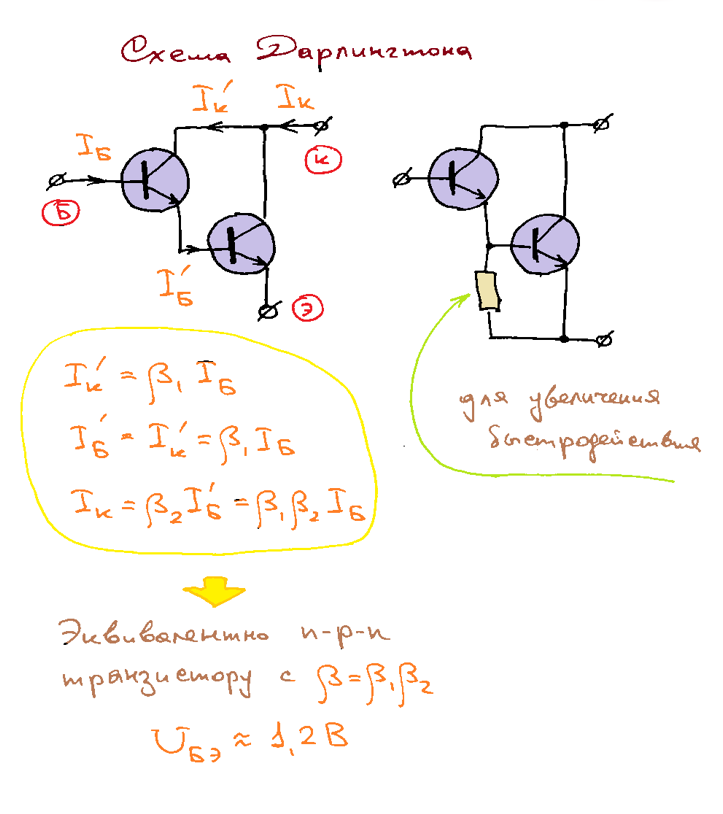 Схема Дарлингтона
I'к Iк
IБ
К
Б
I'Б
Э
I'к = β₁ IБ
I'Б = I'к = β₁ IБ
Iк = β₂ I'Б = β₁ β₂ IБ
для увеличения
быстродействия
Эквивалентно n-p-n
транзистору с β = β₁ β₂
UБЭ ≈ 1,2 В